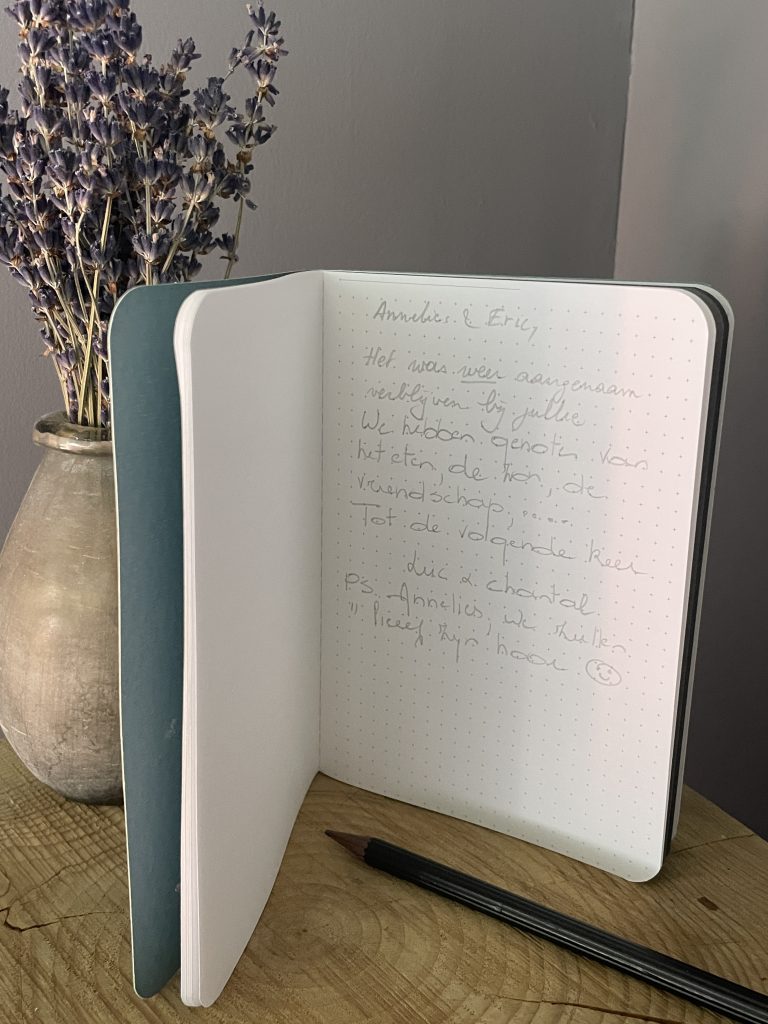 Annelies & Eric,
Het was weer aangenaam
verblijven bij jullie
We hebben genoten van
het eten, de zon, de
vriendschap, ......
Tot de volgende keer
Luc & chantal.
PS. Annelies, we zullen
" lief zijn hoor ☺